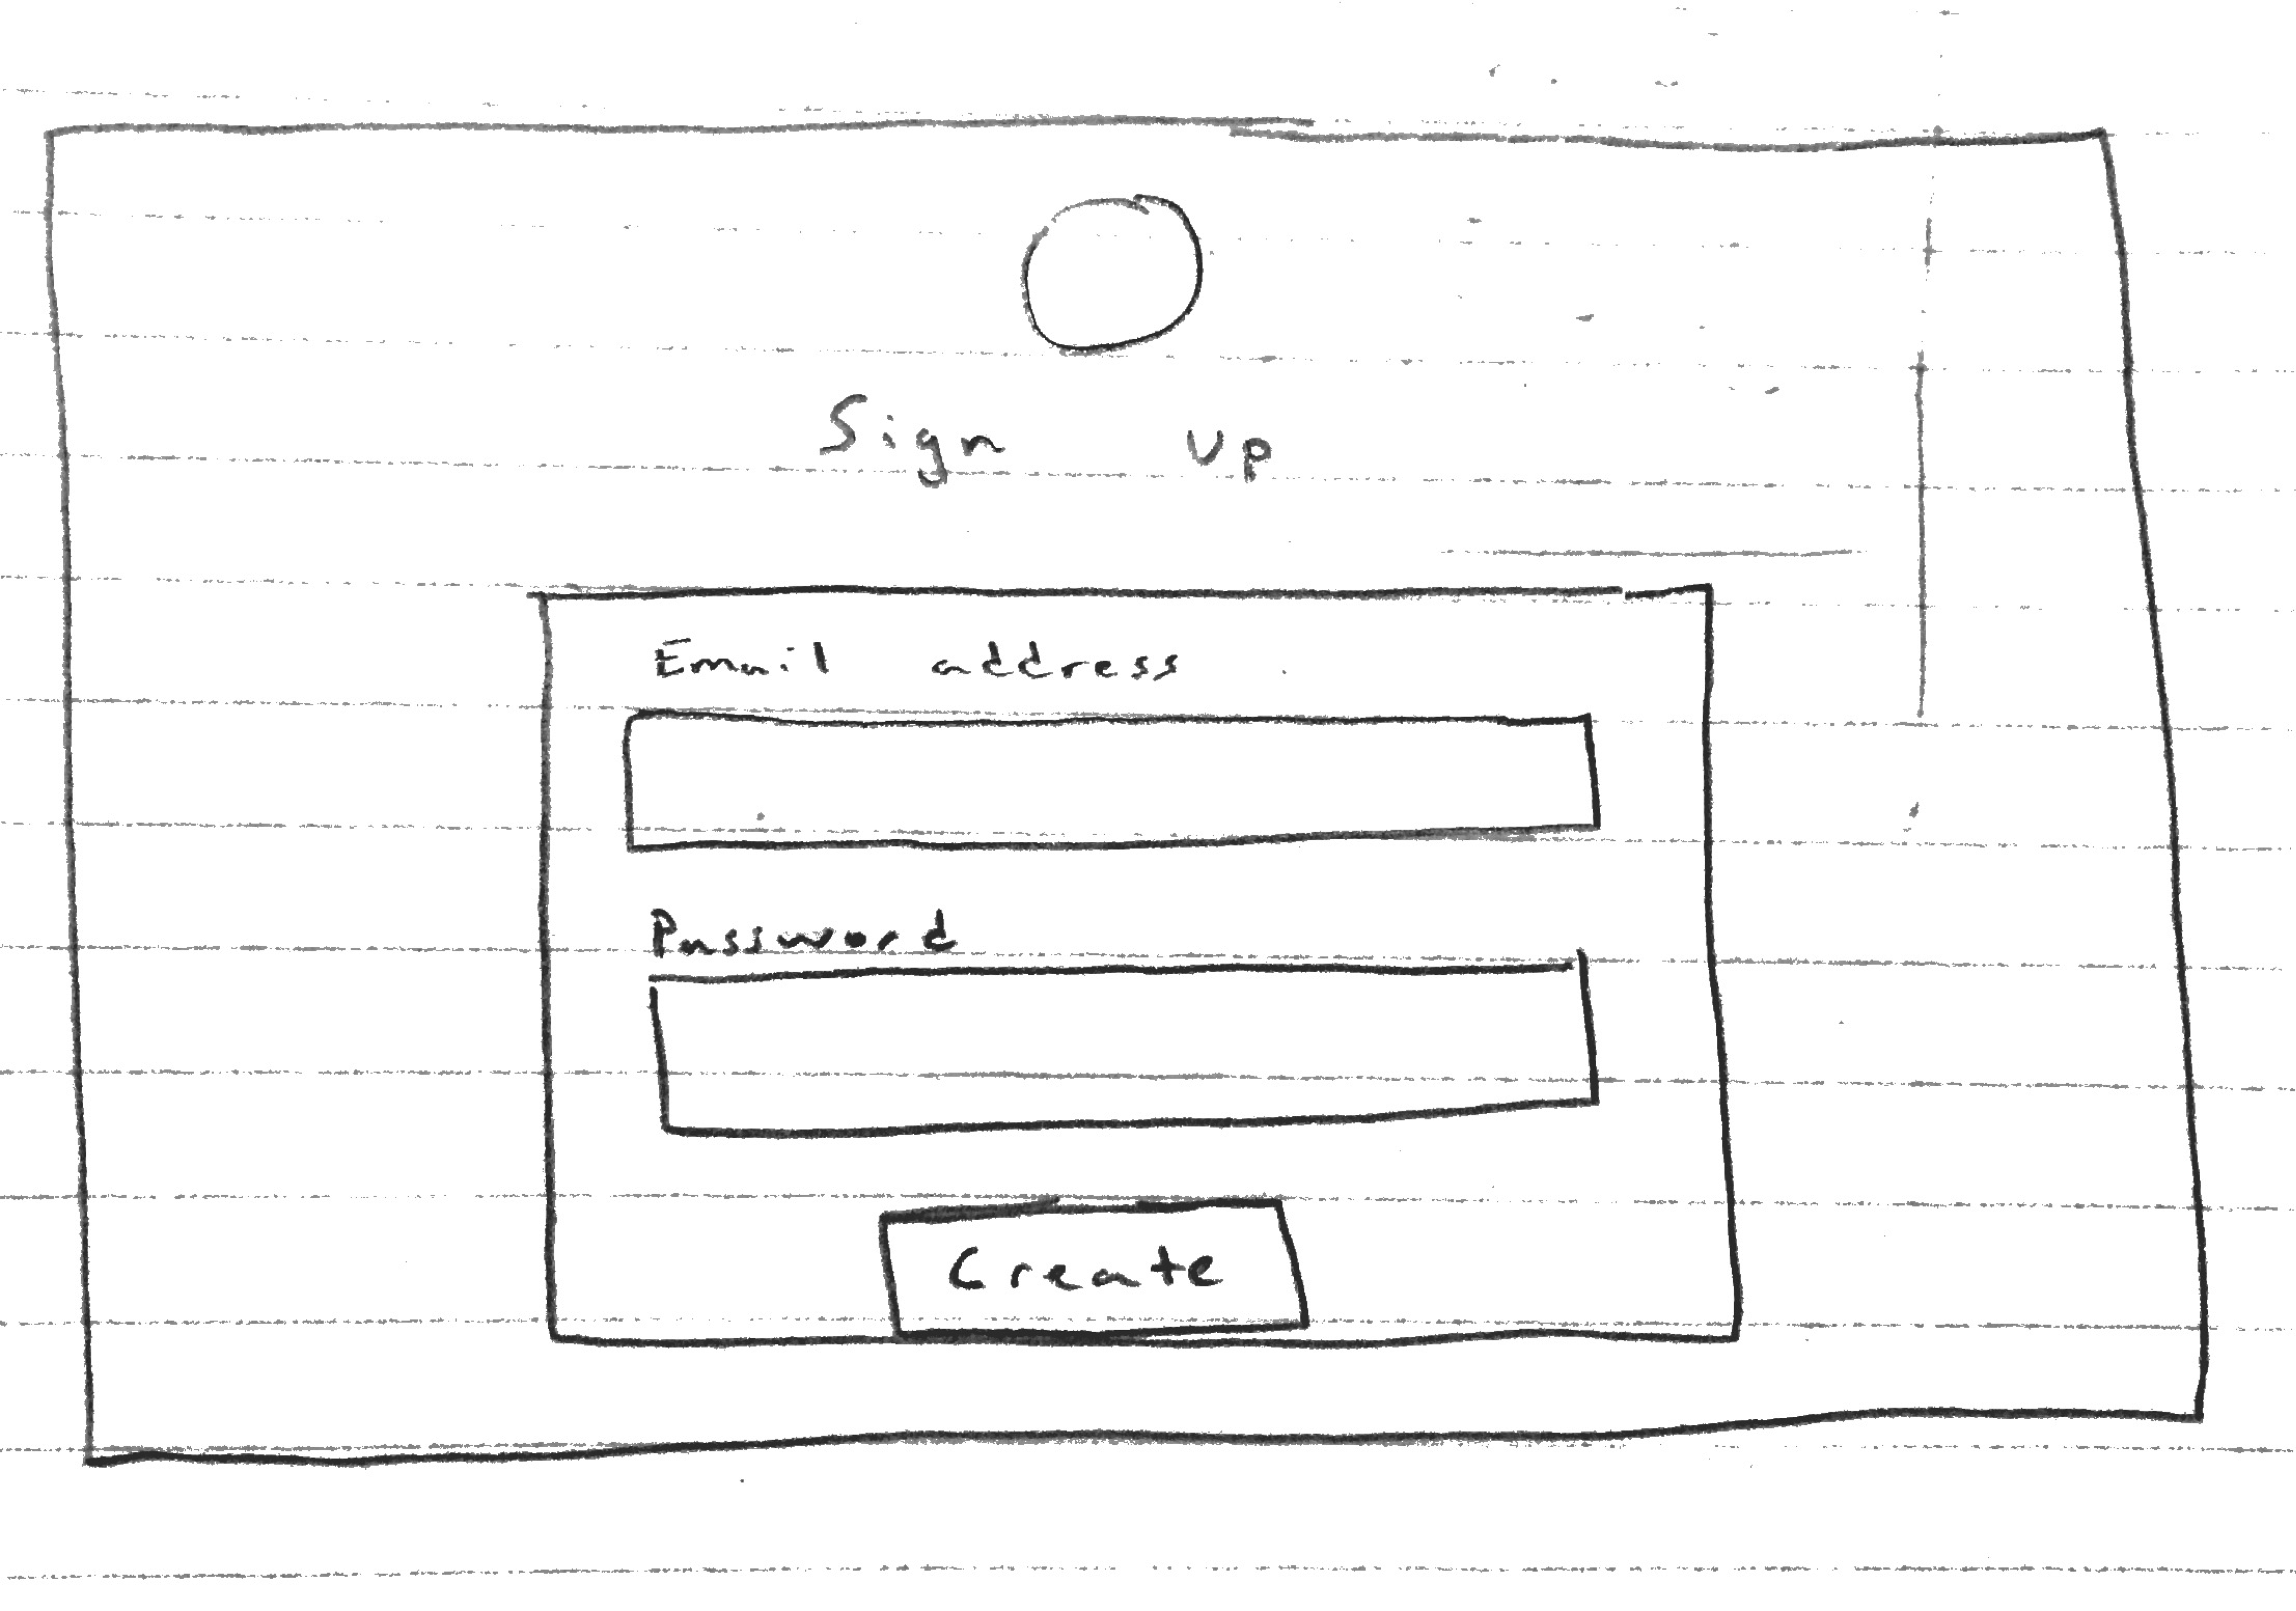 Sign up
Email address
Password
Create